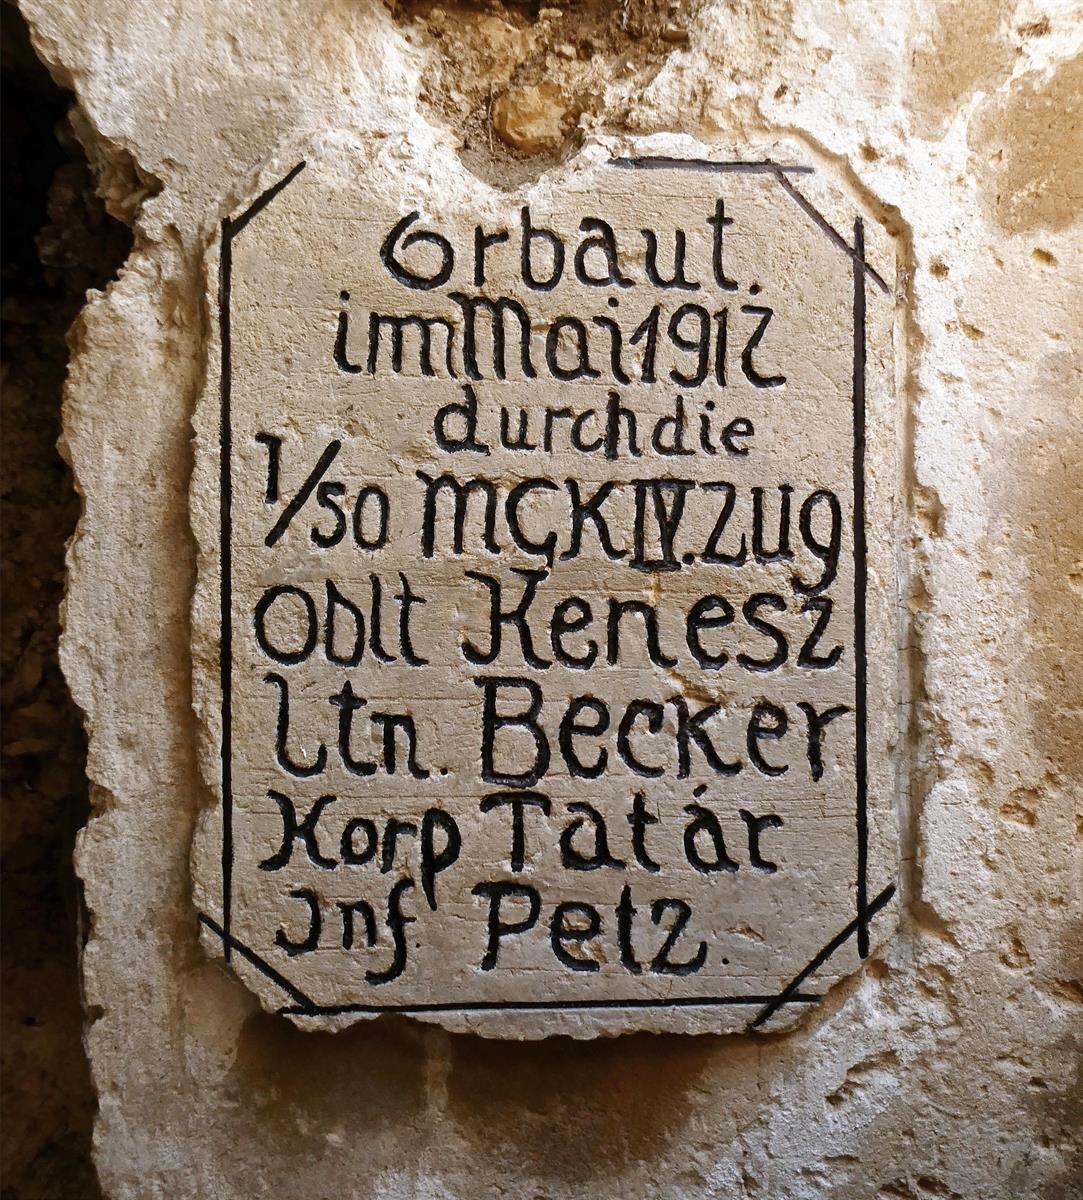 Erbaut.
im Mai 1917
durch die
1/50 MGK IV. Zug
Oblt Kenesz
Ltn. Becker
Korp Tatár
Inf. Petz.